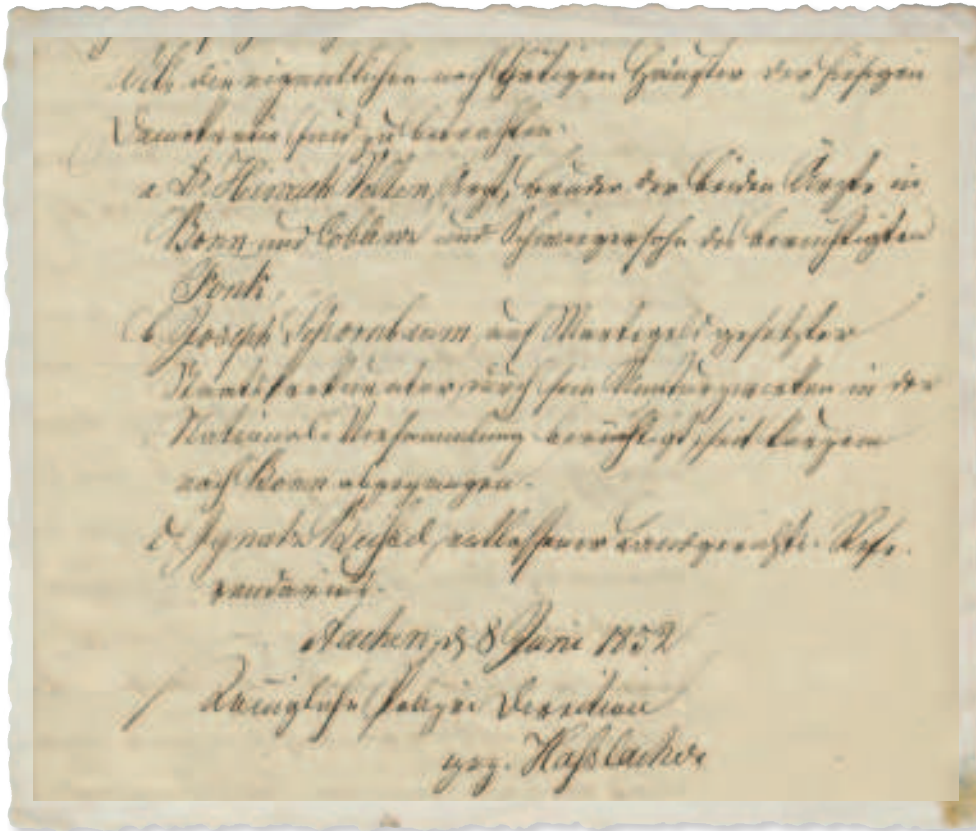 Als die eigentlichen noch thätigen Häupter der hiesigen
Demokratie sind zu betrachten.
a Dr Heinrich Velten, Arzt, Bruder der beiden Ärzte in
Bonn und Coblenz und Schwiegersohn des berüchtigten
Fonk,
b Joseph Schornbaum, auf Wartegeld gesetzter
Staatsprokurator, durch sein in der
National-Versammlung berüchtigt, seit kurzem
nach Bonn
c. Ignatz entlassener Landgerichts-Refe-
rendarius.
Aachen, d 8 Juni 1852
Königliche Polizei Direction
gez. Haßlacher